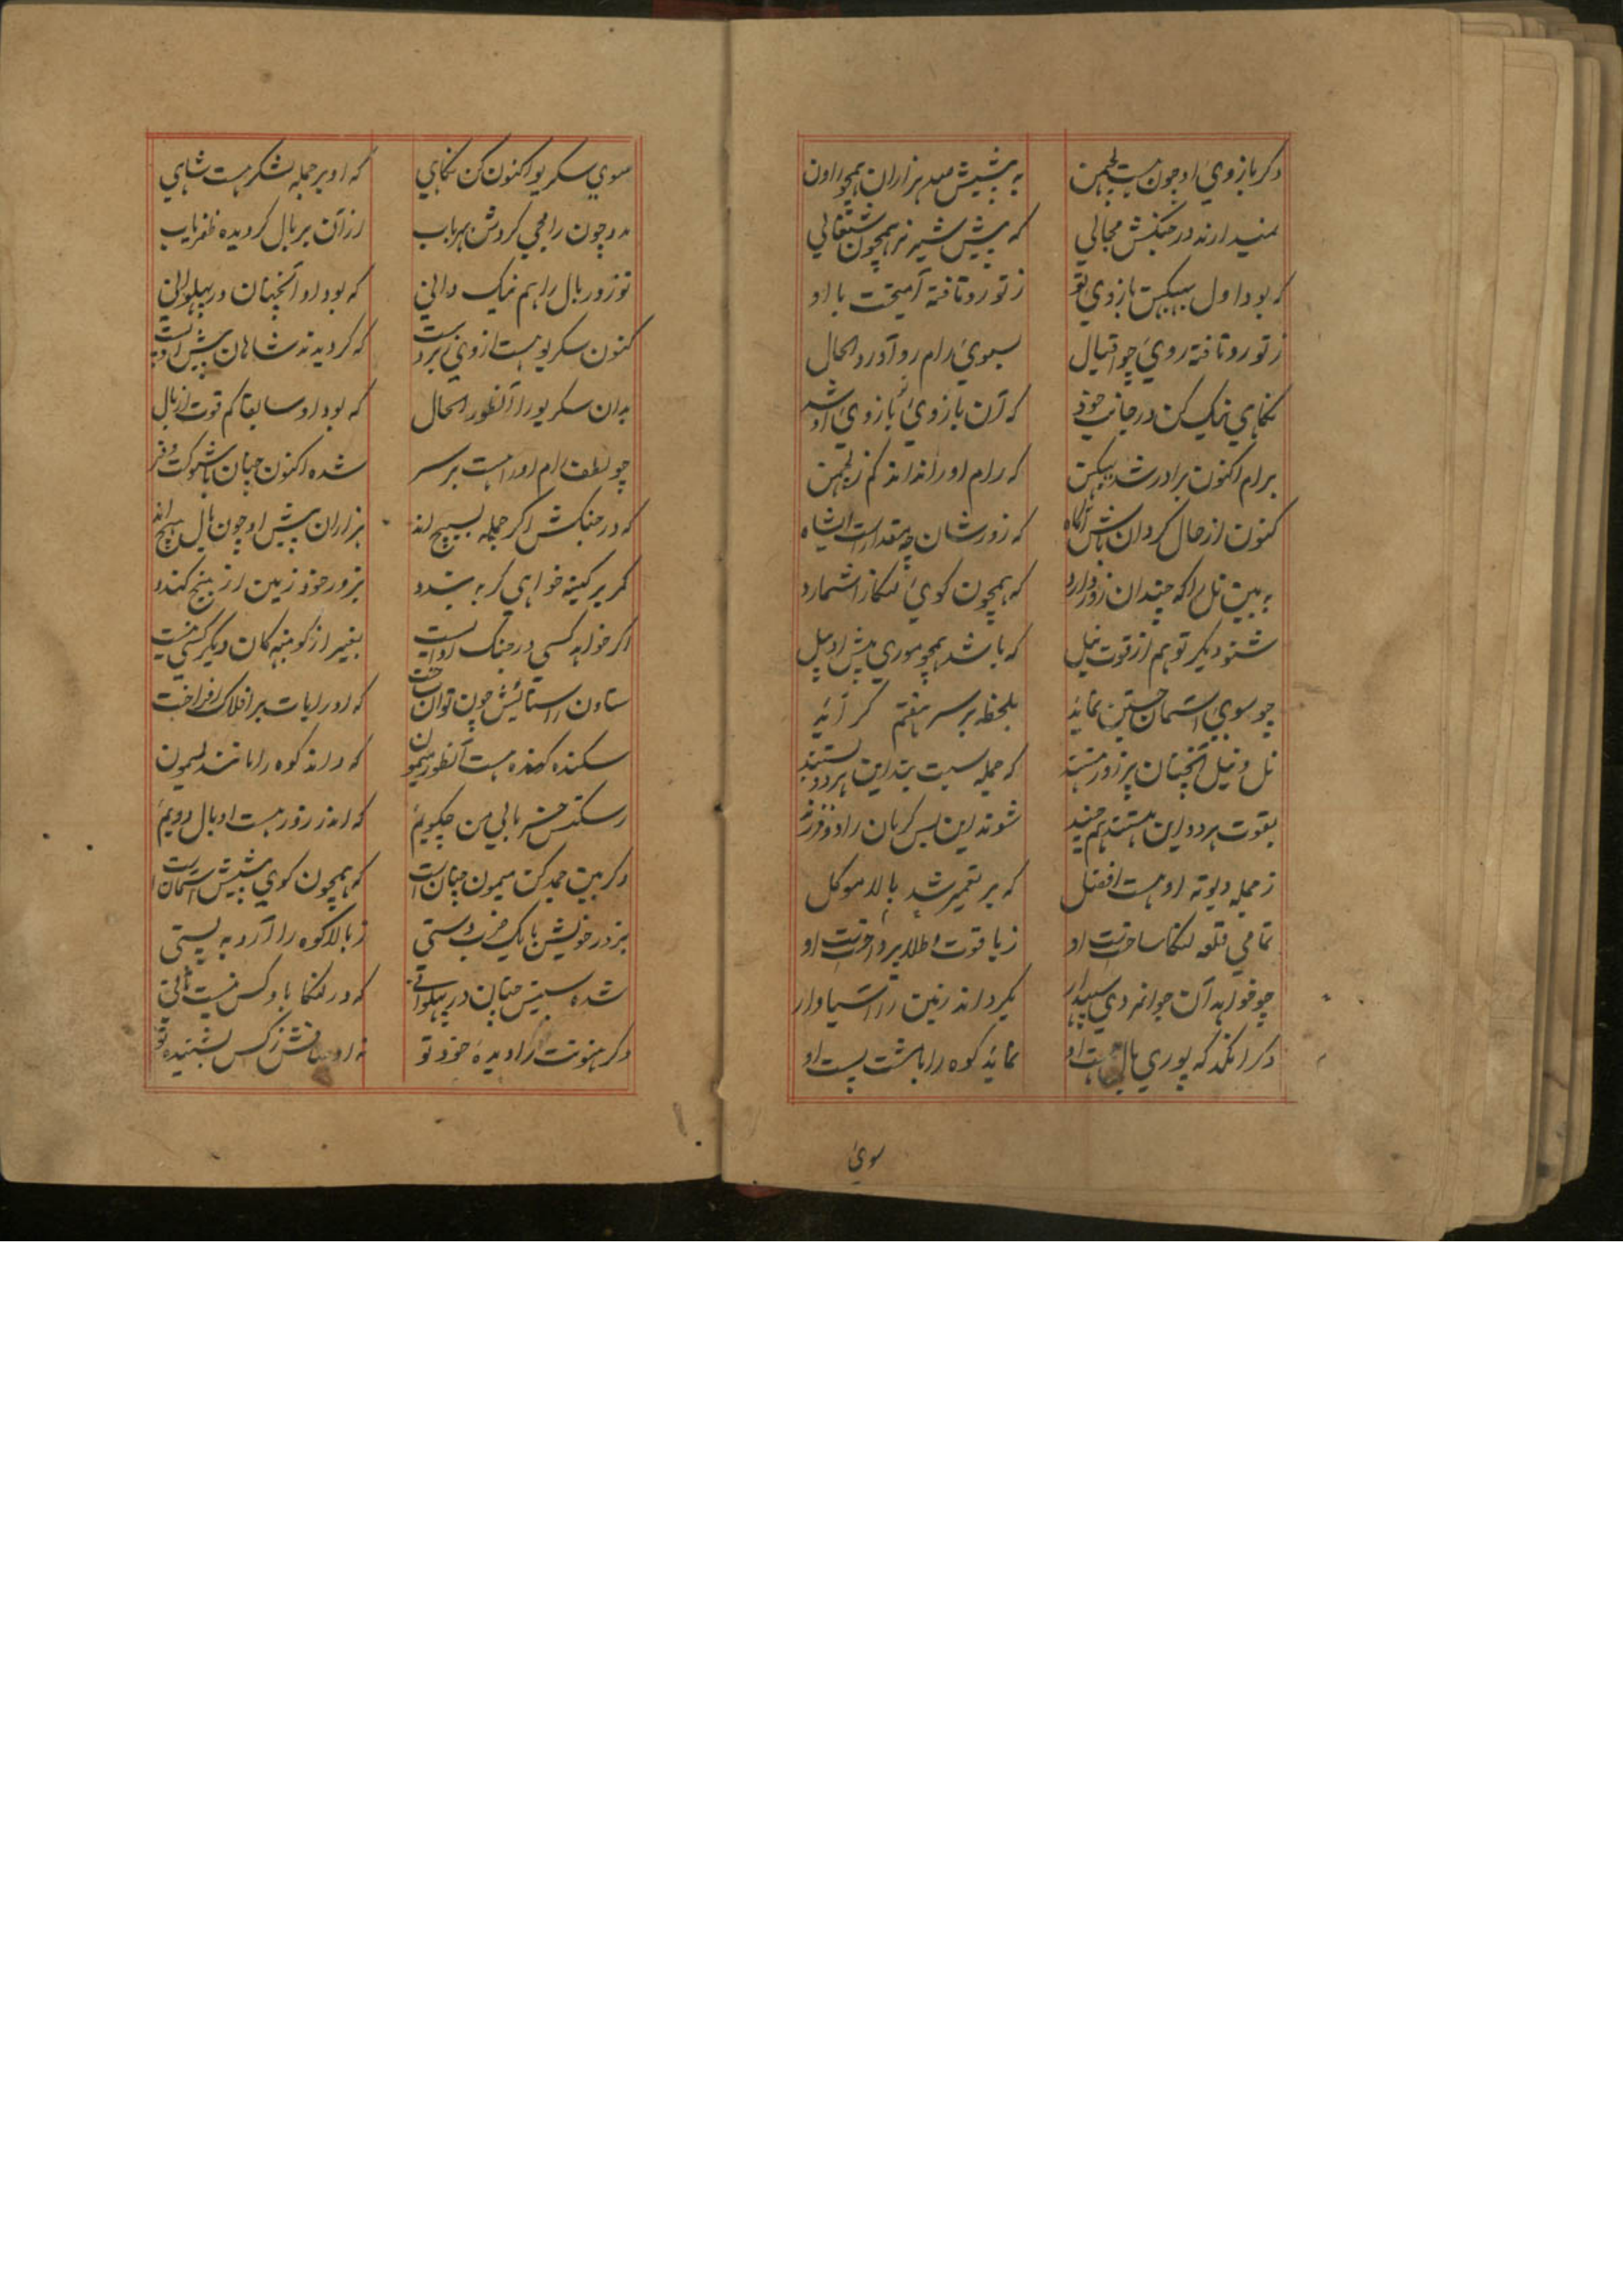 دکر بازوی او چون هست لچمن به پیشش صد هزاران همچو راون
نمیدارند در جنکش مجالی که پیش شیر نر همچون شغالی
که بود اول ببیکن بازوی تو ز تو رو تافته آمیخت با او
ز تو رو تافته روی چو اقبال بسوی رام رو آورد الحال
نکاهی نیک کن در جانب خود که آن بازوی تو بازوی او شد
برام اکنون برادر شد ببیکن که رام او را نداند کم ز لچمن
کنون از حال کردان باش آکاه که زورشان چه مقدار است ایشاه
به بین نل را که چندان زور دارد که همچون کوی لنکا را شمارد
شنو دیکر تو هم از قوت نیل که باشد همچو موری پیش او پیل
چو سوی آسمان جستن نماید بلحظه بر سر هفتم کر آید
نل و نیل آنچنان پر زور هستند که جمله سیت بند این هر دو بستند
بقوت هر دو این هستند هم چند شوند این بس کریان راد و فرزند
ز جمله دیوته او هست افضل که بر تعمیر شد بالا موکل
تمامی قلعه لنکا ساخت است او ز یاقوت و طلا پرداخت است او
چو خواهد آن جوانمردی سپهدار بکرداند زمین را آسیاوار
دکر انکد که پوری بال هست او نماید کوه را با مشت پست او
سوی
سوی سکریو اکنون کن نکاهی که او بر جمله لشکر هست شاهی
مدد چون رامجی کردش بهر باب از آن بر بال کردیده ظفریاب
تو زور بال را هم نیک دانی که بود او آنچنان در پهلوانی
کنون سکریو هست از وی زبردست که کردیدند شاهان پیش او پست
بدان سکریو را آنطور الحال که بود او سابقا کم قوت از بال
چو لطف رام او را هست بر سر شده اکنون چنان با شوکت و فر
که در جنکش اکر جمله بسیچ اند هزاران پیش او چون بال هیچ اند
کمر بر کینه خواهی کر به بندد بزور خود زمین از بیخ کندد
اکر خواهد کسی در جنک او ایست بغیر از کونبهه کان دیکر کسی نیست
ستاون را ستایش چون توان ساخت که او رایات بر افلاک افراخت
سکنده کهنده هست آنطور میمون که دراند کوه را مانند لیمون
ز سکتش خسر بالی من چکویم که اندر زور هست او بال دویم
دکر بین جمدکن میمون چنان است که همچون کوی پیشش آسمان است
بزور خویش با یک ضرب دستی ز بالا کوه را آرد به پستی
شده سیتس چنان در پهلوانی که در لنکا باو کس نیست ثانی
دکر هنونت را دیده خود تو نه اوصافش ز کس بشنیده تو